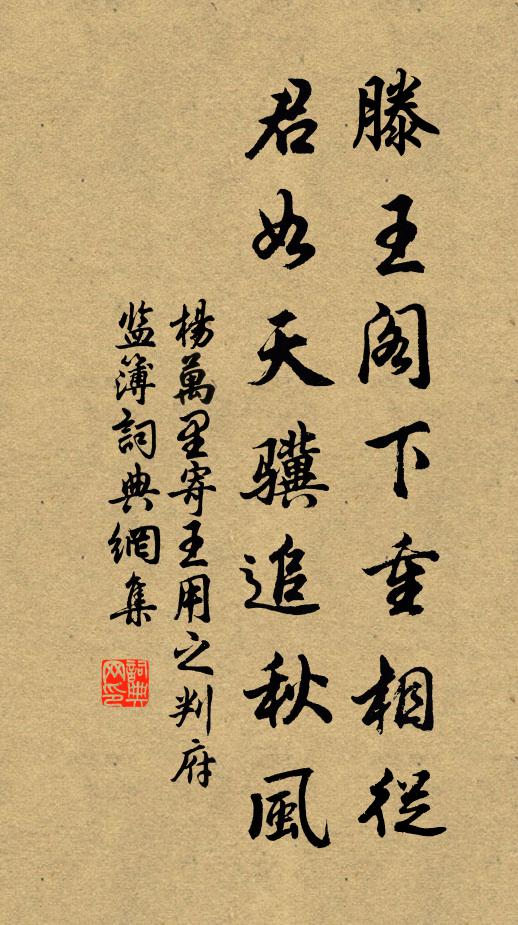 滕王阁下重相從
君如天骥追秋風
楊萬里寄王用之判府
监簿詞典網集
詞典
网印